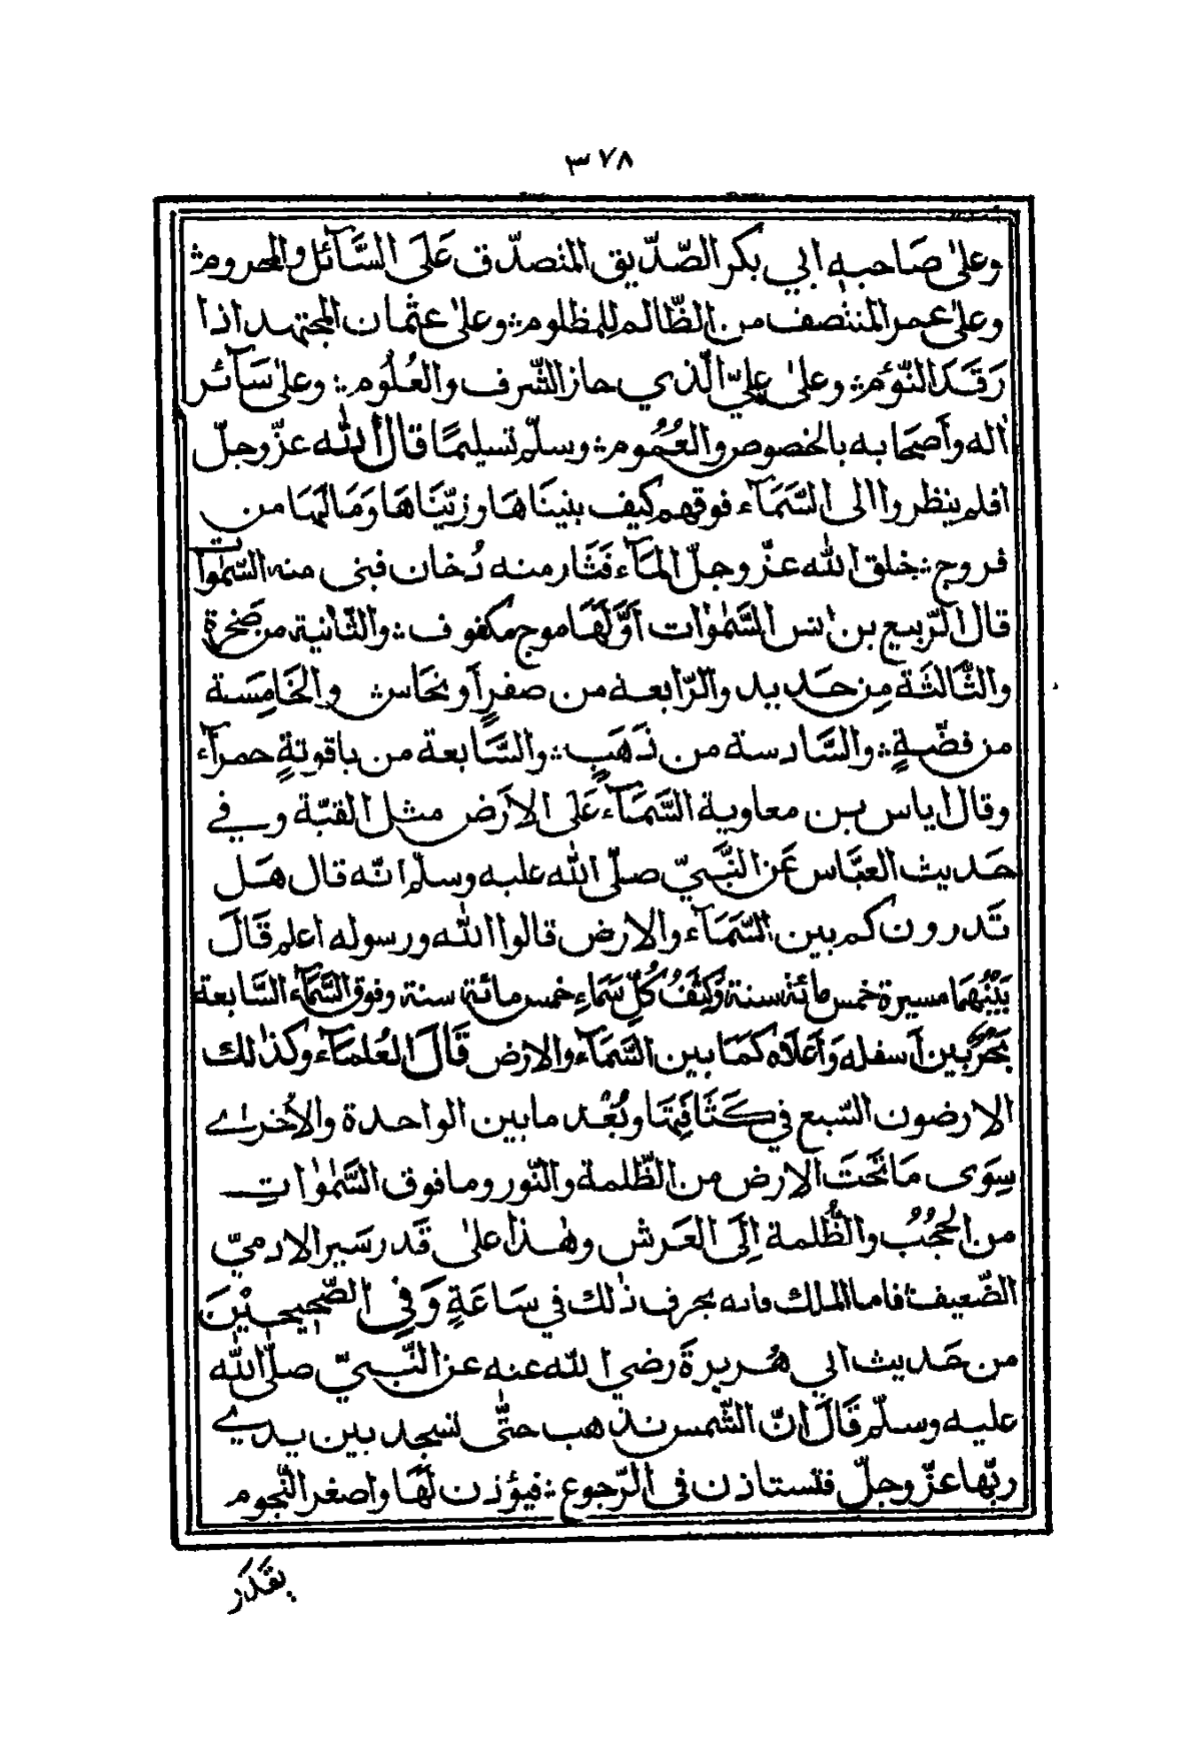 ٣٧٨
وعلىٰ صَاحبه ابي بكر الصّدّيق المتصدّق عَلَى السَّآئل والمحروم؞
وعلىٰ عمر المنتصف من الظّالم للمظلوم؞ وعلىٰ عثمان المجتهد اذا
رَقَدَ النّوّم؞ وعلىٰ عليّ الّذي حاز الشّرف والعُلُوم؞ وعلىٰ سَآئر
اٰله وأصحابه بالخصوص والعُمُوم؞ وسلّم تسليمًا قال الله عزّ وجلّ
افلم ينظروا الى السَّمَآء فوقهم كيف بنينَاهَا وزيّنَّاهَا وَمَا لهَا من
فروج؞ خلق الله عزّ وجلّ المَآء فَثَار منه دُخان فبنى منه السّمٰوات
قال الرّبيع بن انس السَّمٰوٰات أوَّلهَا موج مكفوف؞ والثّانية من صَخرة
والثَّالثَة مِن حَديد والرّابعة من صفرٍ أو نحَاس؞ والخَامِسَة
من فضّةٍ؞ والسَّادسة من ذَهَبٍ؞ والسَّابعة من ياقوتةٍ حمرآء
وقال اياس بن معاوية السَّمَآء عَلى الاَرض مثل القبّة وفي
حَديث العبَّاس عَن النَّبيّ صلّى الله عليه وسلّم انّه قال هَل
تَدرون كم بين السَّمَآء والارض قالوا الله ورسوله اعلم قَالَ
بَيْنُهمَا مسيرة خمس مائة سنة وَكِثَفُ كُلّ سَمَاءٍ خمس مائة سنة وفوق السَّمَآء السَّابعة
بَحْرٌ بين أسفله وَأعْلَاه كمَا بين السَّمَآء والارض قَالَ العُلمَآء وكذٰلك
الارضون السّبع في كَثَافِتهَا وبُعْد مابين الواحدة والأخرٰى
سِوَى مَا تَحْتَ الارض من الظّلمة والنّور وما فوق السَّمٰوٰات
من الحُجُبُ والظُّلمة إلَى العَرش وهٰذا علىٰ قَدر سَير الادميّ
الضّعيف؞ فاما الملك فانه يخرق ذٰلك في سَاعَةٍ وَفِي الصَّحِيحَيْنَ
من حَديث ابي هُريرةَ رضي الله عنه عن النّبيّ صلّى الله
عليه وسلّم قَالَ انّ الشّمس تذهب حتّٰى تسجد بين يدي
ربّها عزّ وجلّ فتستاذن في الرّجوع؞ فيؤذن لهَا واصغر النّجوم
بقَدَر